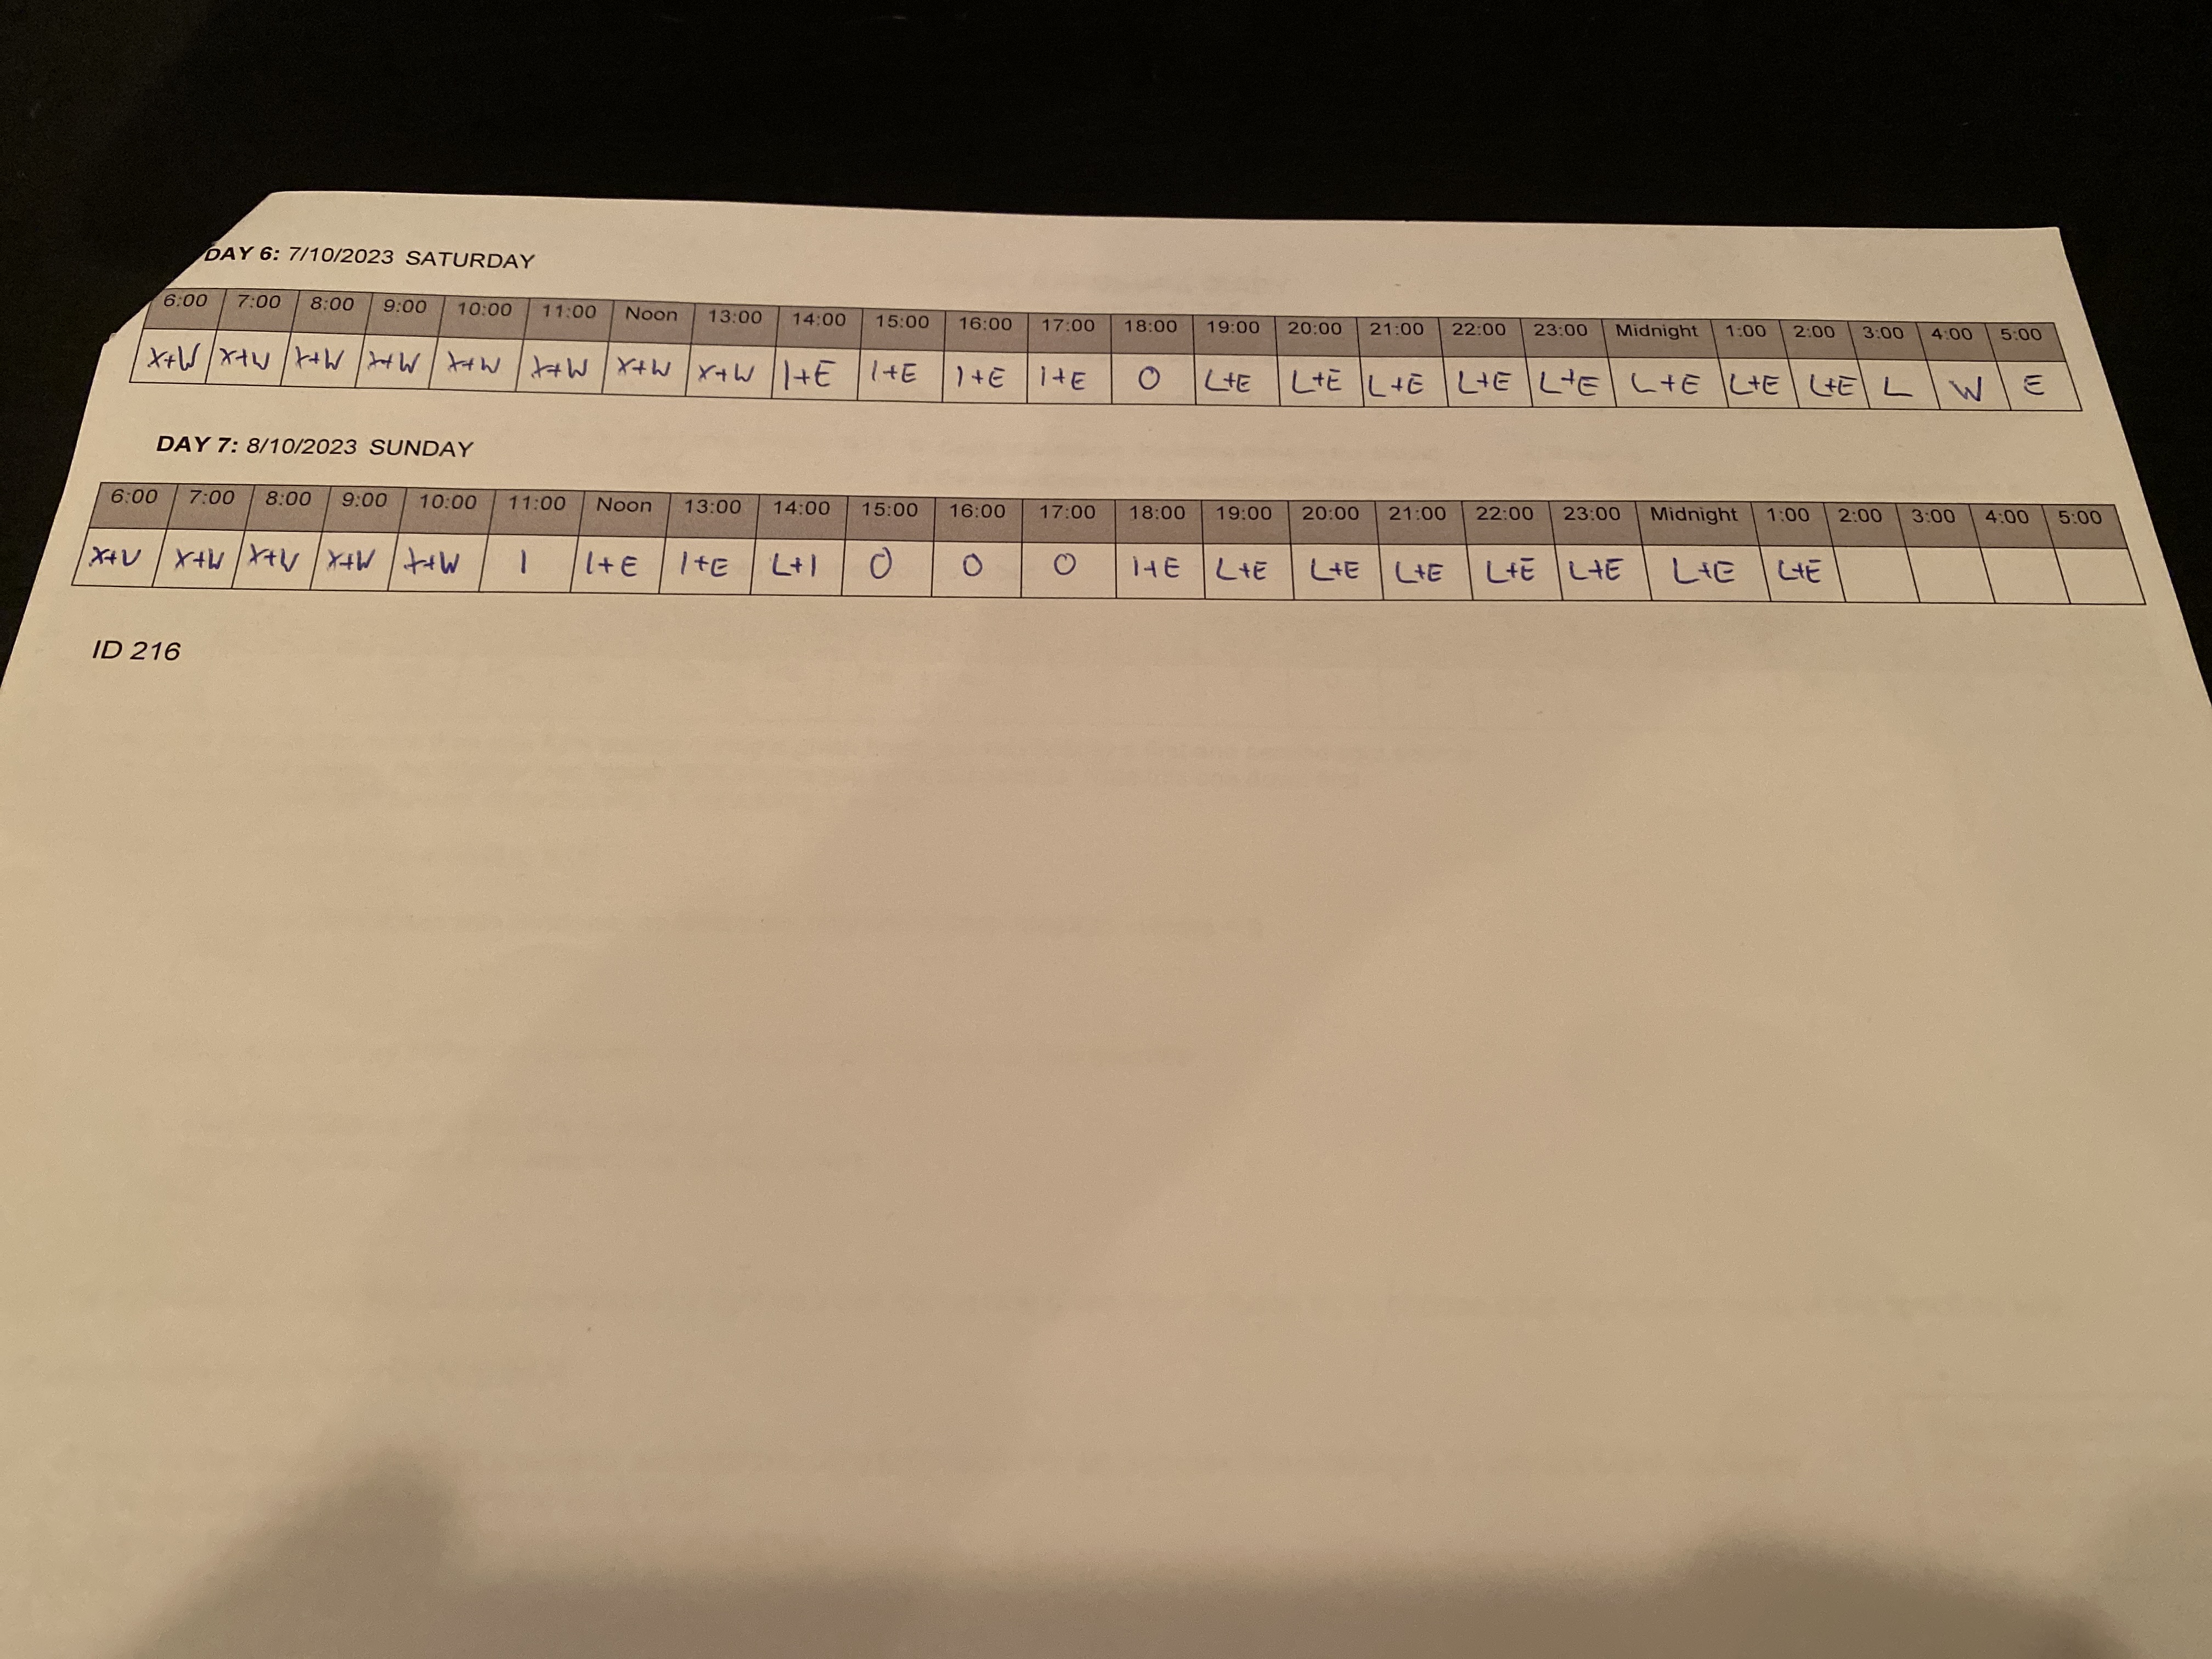 DAY 6: 7/10/2023 SATURDAY
6:00 7:00 8:00 9:00 10:00 11:00 Noon 13:00 14:00 15:00 16:00 17:00 18:00 19:00 20:00 21:00 22:00 23:00 Midnight 1:00 2:00 3:00 4:00 5:00
X+W X+W X+W X+W X+W X+W X+W X+W I+E I+E I+E I+E O L+E L+E L+E L+E L+E L+E L+E L+E L W E
DAY 7: 8/10/2023 SUNDAY
6:00 7:00 8:00 9:00 10:00 11:00 Noon 13:00 14:00 15:00 16:00 17:00 18:00 19:00 20:00 21:00 22:00 23:00 Midnight 1:00 2:00 3:00 4:00 5:00
X+W X+W X+W X+W X+W I I+E I+E L+I O O O I+E L+E L+E L+E L+E L+E L+E L+E
ID 216